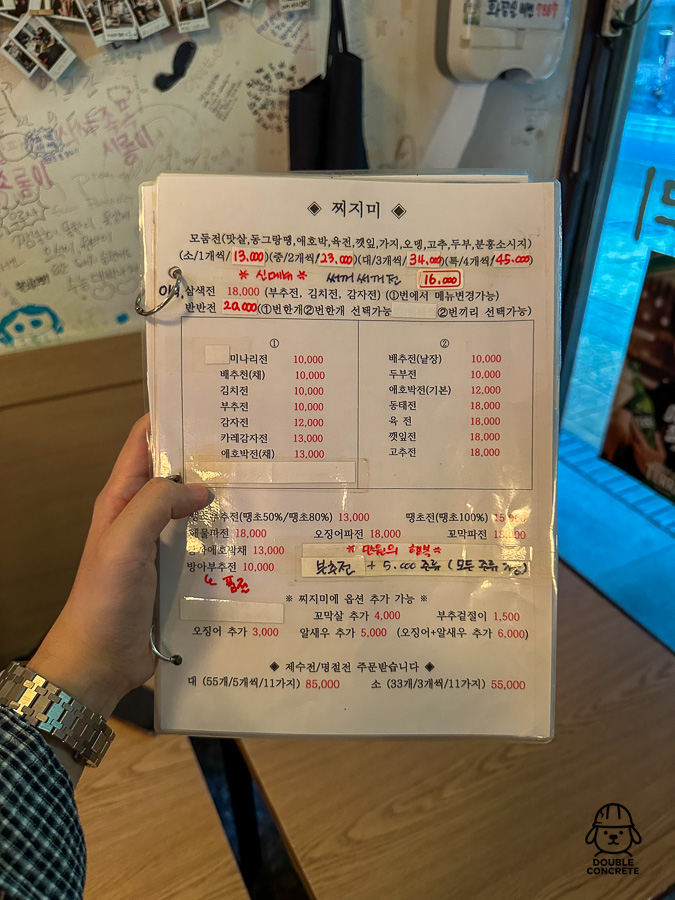 ◈ 찌지미 ◈
모듬전(맛살,동그랑땡,애호박,육전,깻잎,가지,오뎅,고추,두부,분홍소시지)
(소/1개씩/13,000)(중/2개씩/23,000)(대/3개씩/34,000)(특/4개씩/45,000)
* 신메뉴 * 써께써께전 16,000
삼색전 18,000 (부추전, 김치전, 감자전) (①번에서 메뉴변경가능)
반반전 20,000 (①번한개②번한개 선택가능 ②번끼리 선택가능)
① ②
미나리전 10,000 배추전(낱장) 10,000
배추천(채) 10,000 두부전 10,000
김치전 10,000 애호박전(기본) 12,000
부추전 10,000 동태전 18,000
감자전 12,000 육 전 18,000
카레감자전 13,000 깻잎전 18,000
애호박전(채) 13,000 고추전 18,000
부추전(땡초50%/땡초80%) 13,000 땡초전(땡초100%)
해물파전 18,000 오징어파전 18,000 꼬막파전
애호박채 13,000 * 만원의 행복 *
방아부추전 10,000 부추전 + 5,000 주류 (모든 주류 가능)
※ 찌지미에 옵션 추가 가능 ※
꼬막살 추가 4,000 부추겉절이 1,500
오징어 추가 3,000 알새우 추가 5,000 (오징어+알새우 추가 6,000)
◈ 제수전/명절전 주문받습니다 ◈
대 (55개/5개씩/11가지) 85,000 소 (33개/3개씩/11가지) 55,000
DOUBLE
CONCRETE